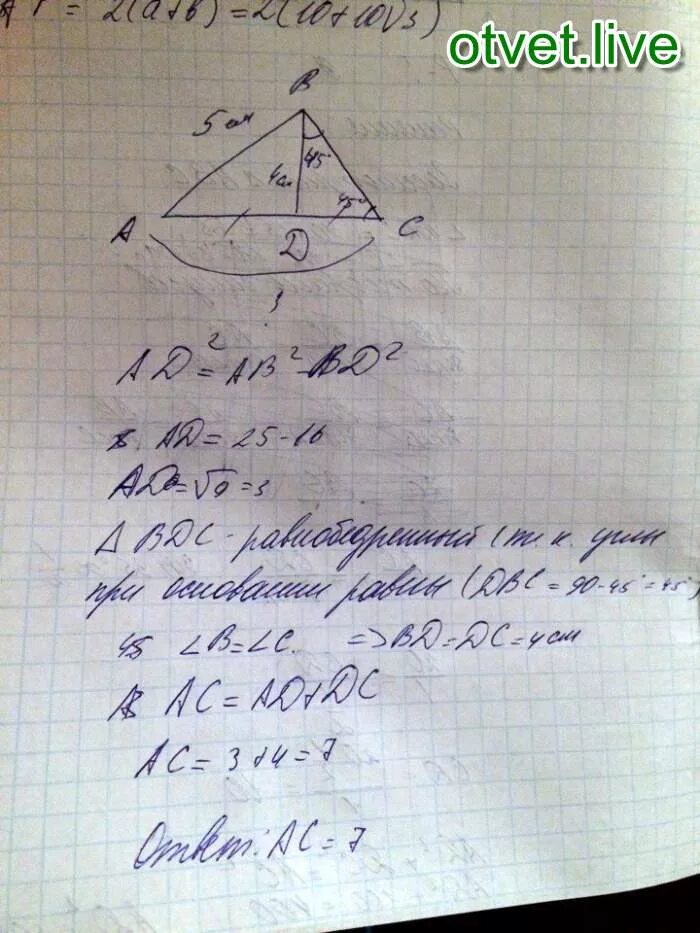 P = 2(a+b) = 2(10+10√3)
otvet.live
B
5 см
4см
45°
45°
A
D
C
AD² = AB² - BD²
AD = 25 - 16
AD = √9 = 3
Δ BDC - равнобедренный (т.к. углы
при основании равны (DBC = 90-45°=45°
∠B=∠C. => BD=DC=4см
AC = AD+DC
AC = 3+4 = 7
Ответ: AC = 7